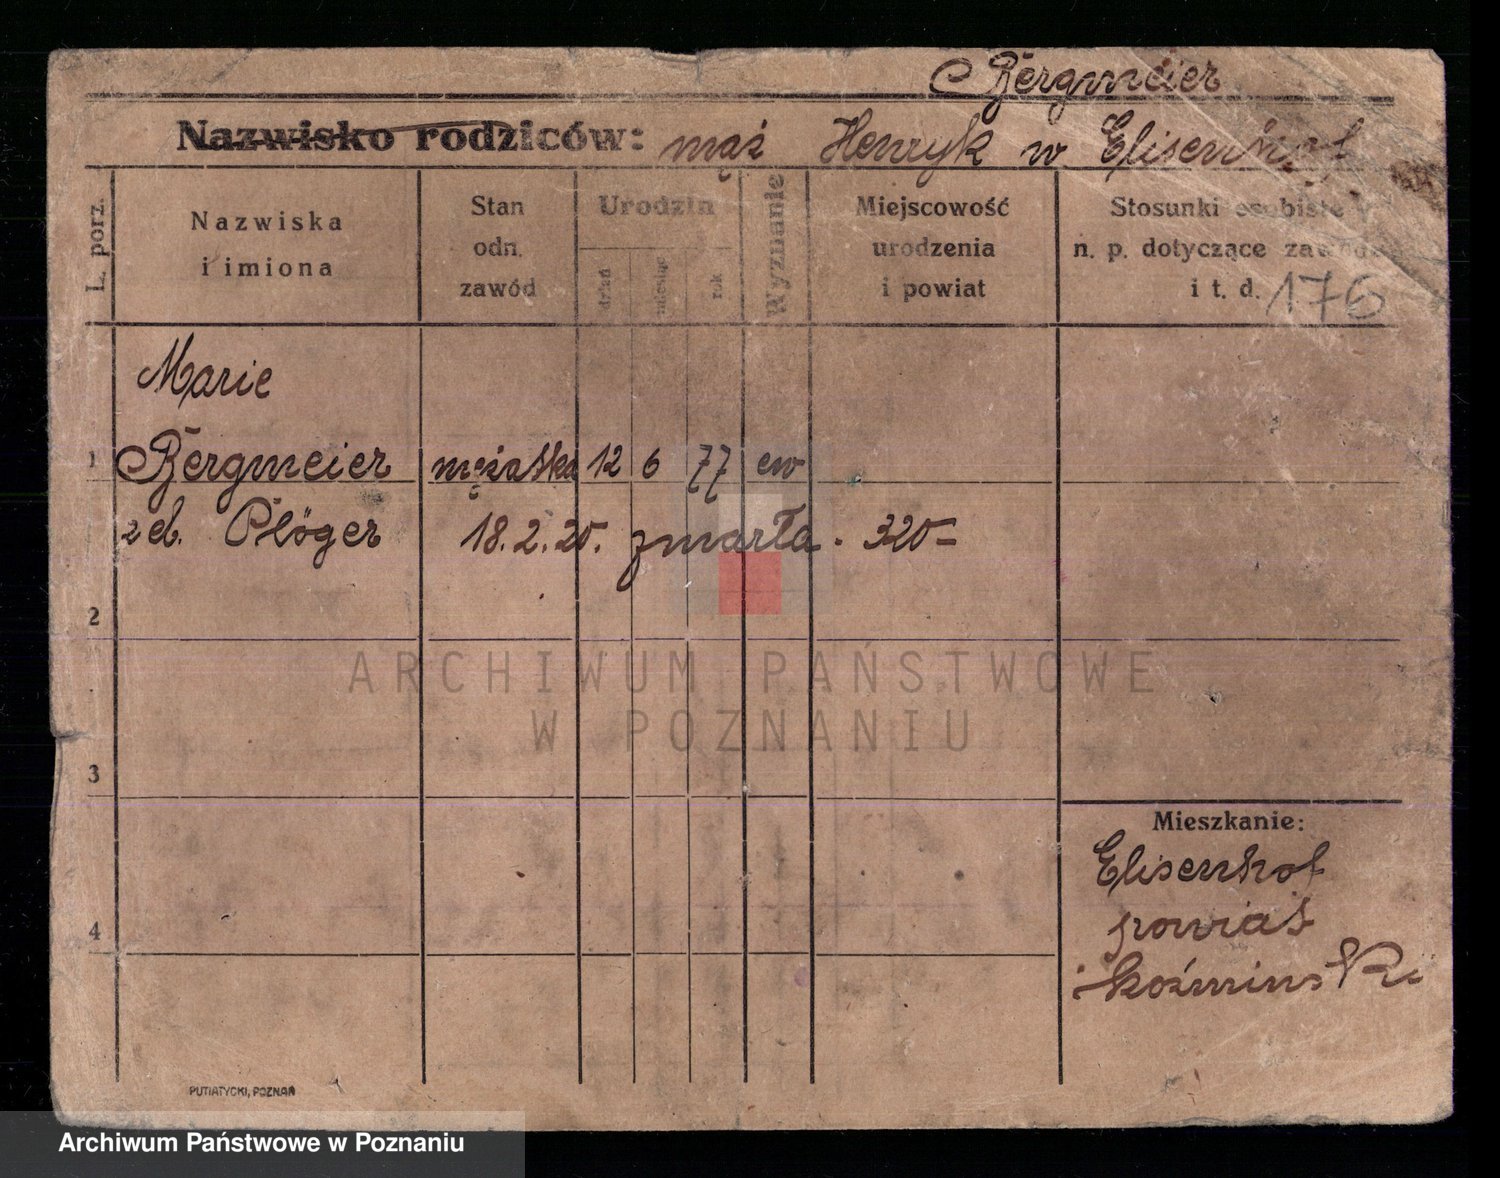 Bergmeier
Nazwisko rodziców: mąż Henryk w Elisenhof
L. porz.
Nazwiska
i imiona
Stan
odn.
zawód
Urodzin
dzień
miesiąc
rok
Wyznanie
Miejscowość
urodzenia
i powiat
Stosunki osobiste
n. p. dotyczące zawodu
i t. d. 176
Marie
1 Bergmeier mężatka 12 6 77 ew
geb. Plöger 18.2.20. zmarła. 320=
2
3
4
Mieszkanie:
Elisenhof
powiat
koźminski
PUTIATYCKI, POZNAŃ
ARCHIWUM PAŃSTWOWE
W POZNANIU
Archiwum Państwowe w Poznaniu